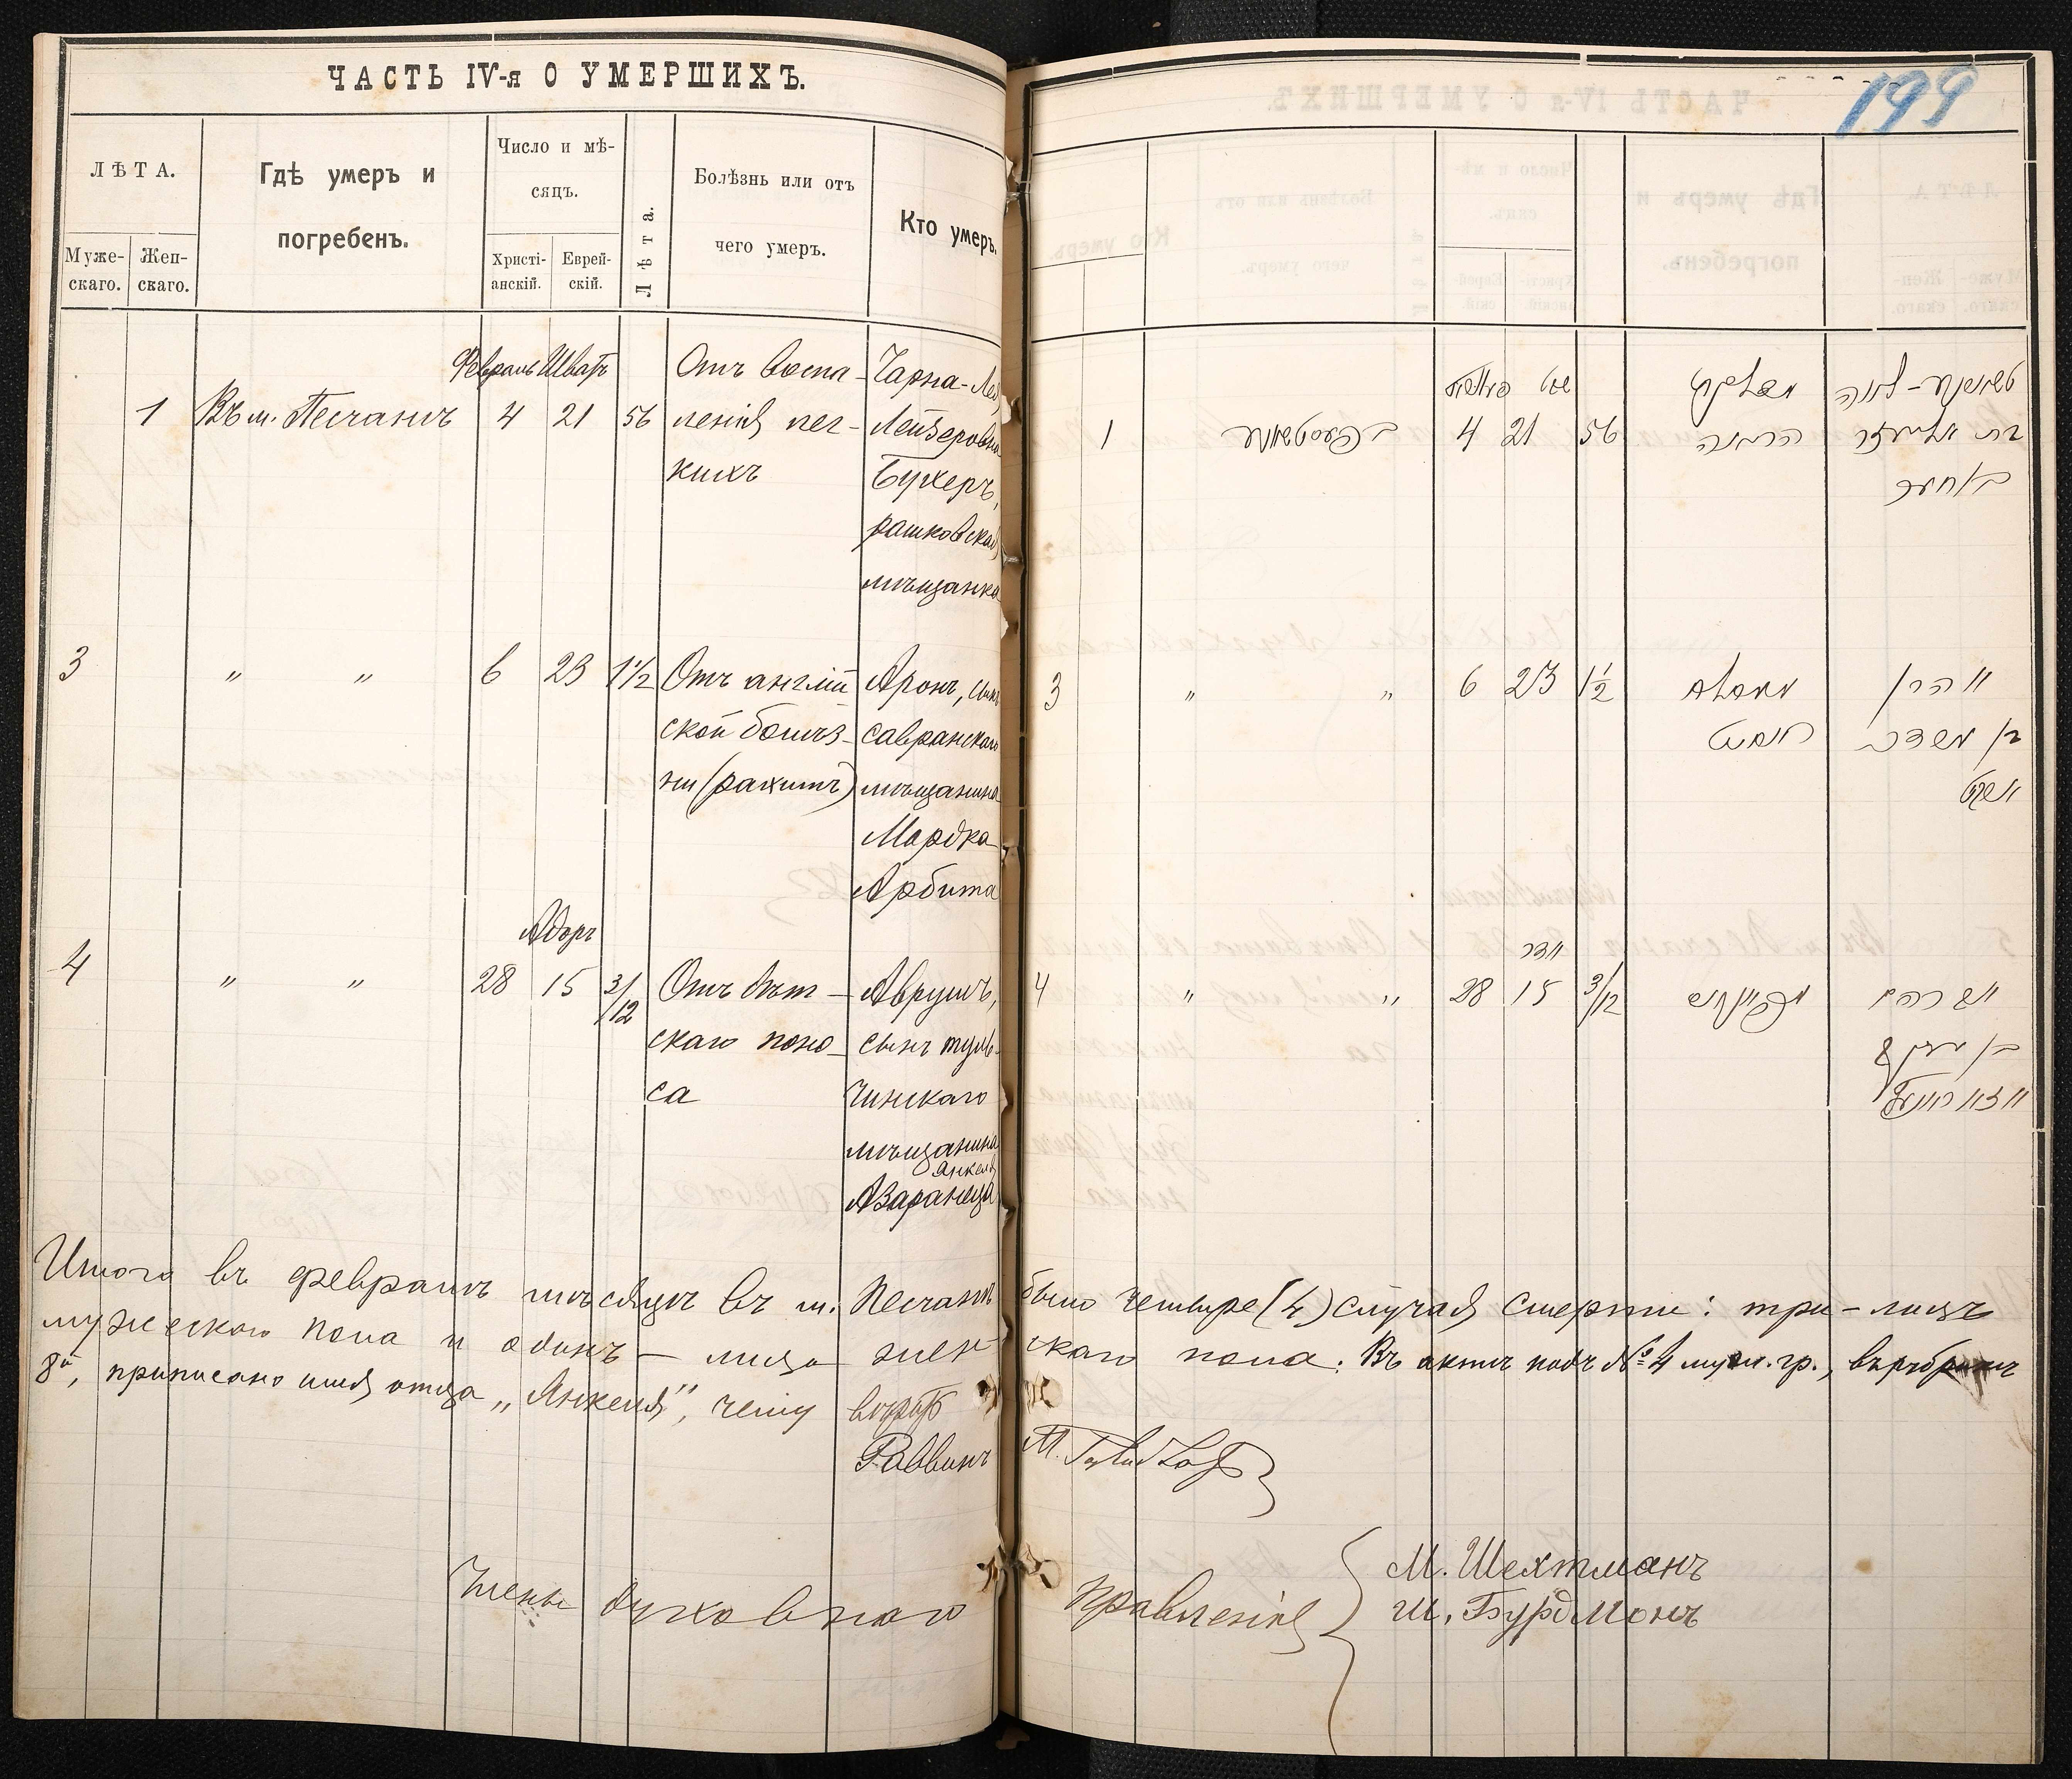 ЧАСТЬ IV-я О УМЕРШИХЪ.
ЛѢТА.
Муже-
скаго.
Жен-
скаго.
Гдѣ умеръ и
погребенъ.
Число и мѣ-
сяцъ.
Христі-
анскій.
Еврей-
скій.
Лѣта.
Болѣзнь или отъ
чего умеръ.
Кто умеръ.
Февраль Шватъ
1 Въ м. Песчанѣ 4 21 56
Отъ воспа-
ленія лег-
кихъ
Чарна-Лея
Лейзеровна
Бухеръ,
рашковская
мѣщанка
3 " " 6 23 1 1/2
Отъ англій
ской болѣз-
ни (рахитъ)
Аронъ, сынъ
савранскаго
мѣщанина
Мордка
Арбита
Адоръ
4 " " 28 15 3/12
Отъ дѣт-
скаго поно-
са
Аврумъ,
сынъ туль-
чинскаго
мѣщанина
Янкеля
Азаранеца
199
1 4 21 56
בת אליעזר
3 " " 6 23 1 1/2
אהרן
בן
אדר
4 " " 28 15 3/12
אברהם
בן
Итого въ февралѣ мѣсяцѣ въ м. Песчанѣ было четыре (4) случая смерти: три - лицъ
мужескаго пола и одинъ - лица женскаго пола. Въ актѣ подъ № 4 муж. гр., въ рубрикѣ
8й, приписано имя отца „Янкеля", чему вѣрить
Раввинъ
Члены духовнаго правленія
М. Шехтманъ
Ш. Бурдмонъ